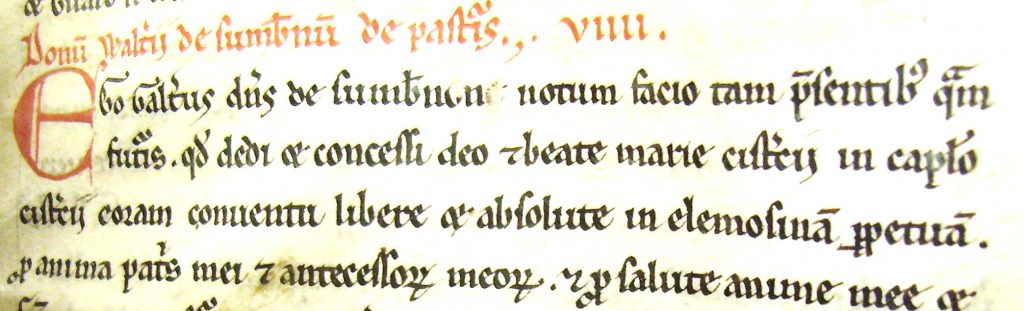 Donū Walt'ii de sumb'nū de past'is. VIIII.
Ego Galt'ius dn̄s de sumb'non notum facio tam p̄sentib⁹ qᵃm
fut'is. qđ dedi & concessi deo ⁊ beate marie cist'cii in cap̄lo
cist'cii coram conuentu libere & absolute in elemosinā ꝑpetuā.
ꝓ anima pat'is mei ⁊ antecessoꝝ meoꝝ. ⁊ ꝓ salute anime mee &